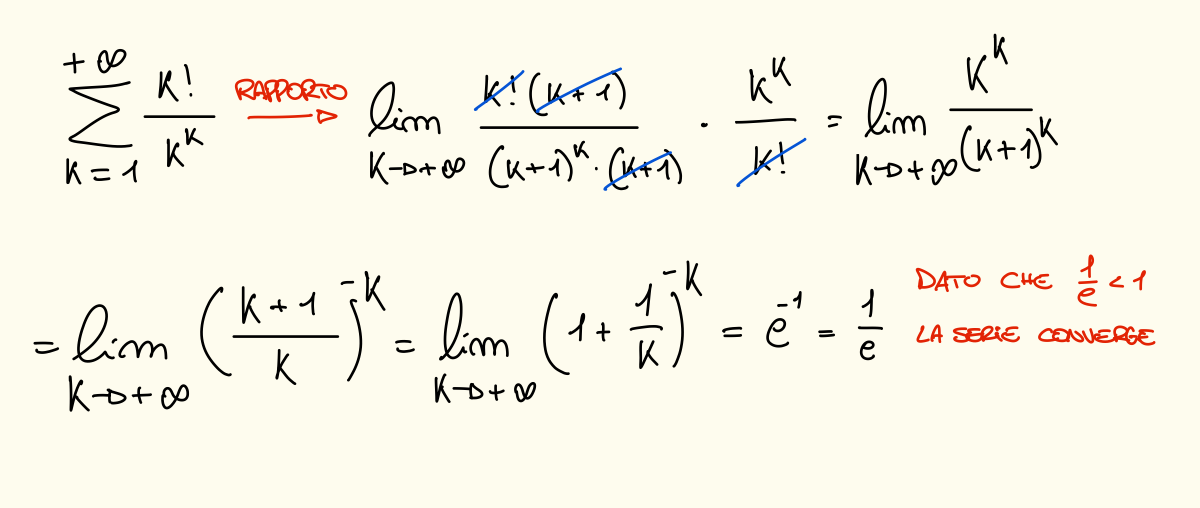 +∞ ∑ K=1 K!/K^K RAPPORTO → lim K→+∞ K!(K+1)/((K+1)^K·(K+1)) · K^K/K! = lim K→+∞ K^K/(K+1)^K
= lim K→+∞ ((K+1)/K)^-K = lim K→+∞ (1+1/K)^-K = e^-1 = 1/e DATO CHE 1/e < 1
LA SERIE CONVERGE